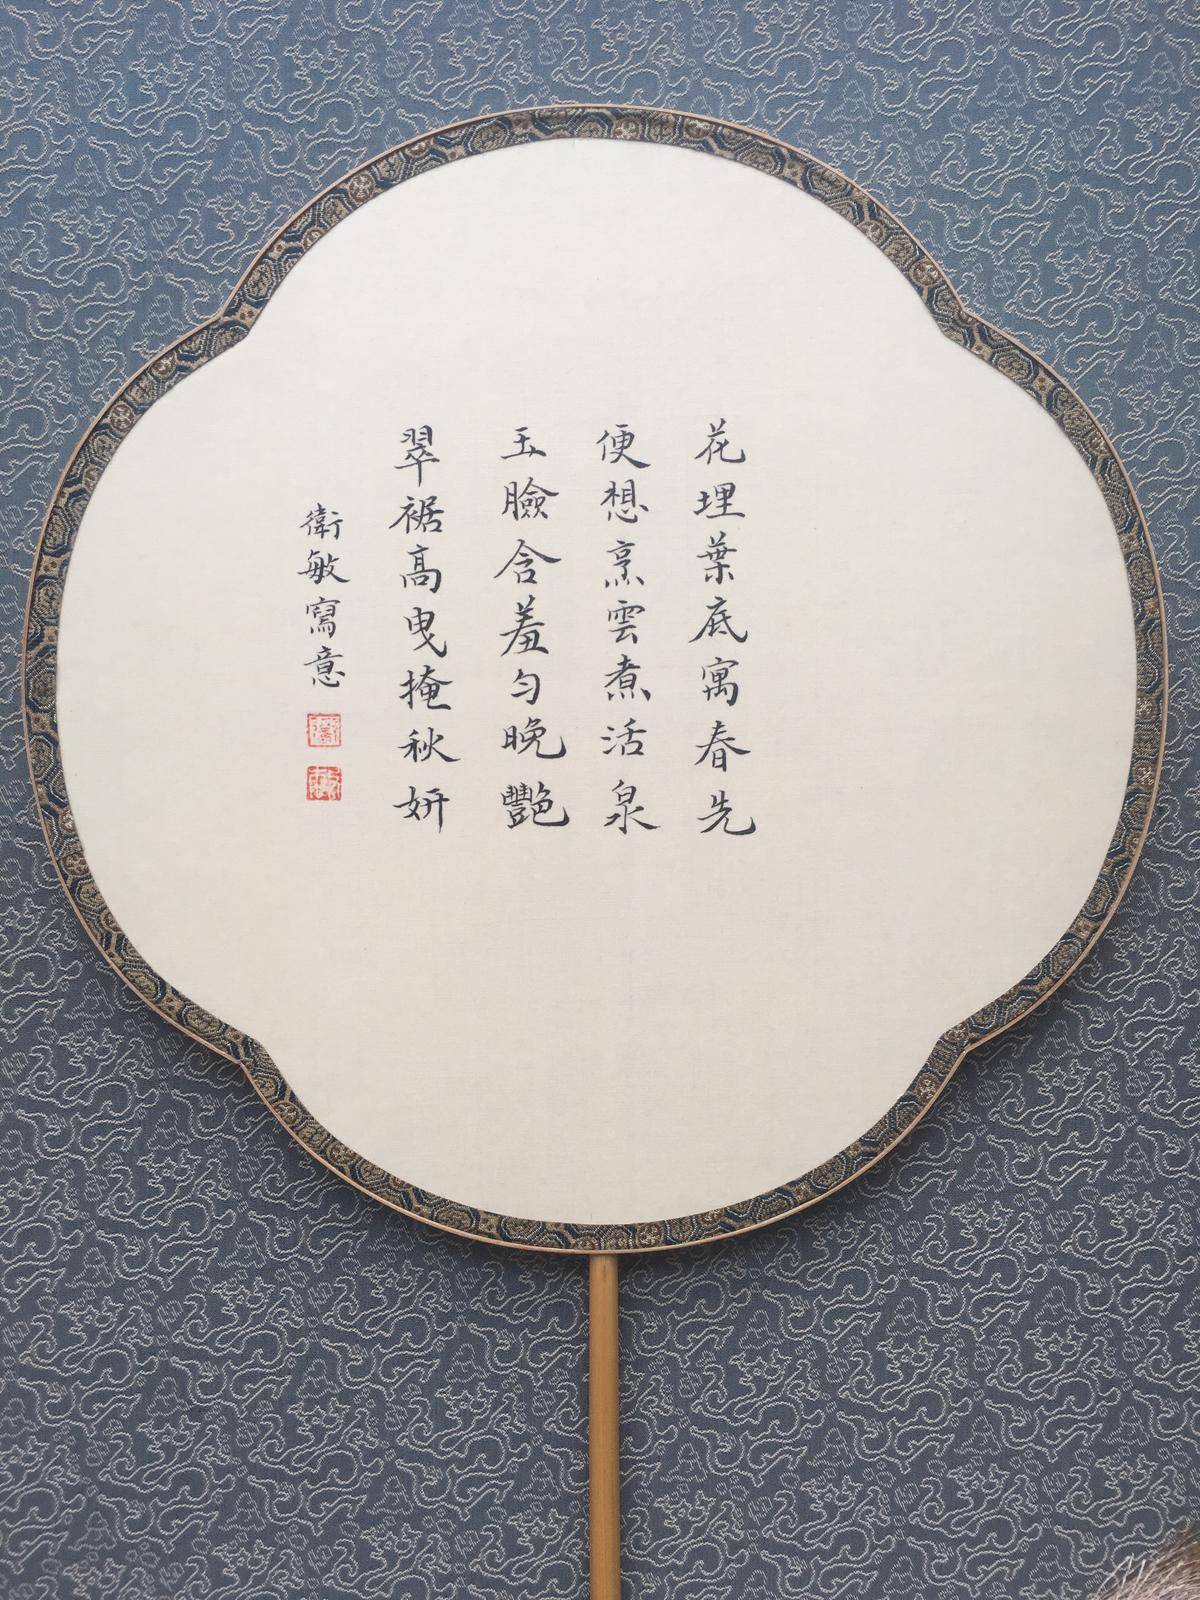 花埋葉底寓春先
便想烹雲煮活泉
玉臉含羞勻晚艷
翠裾高曳掩秋妍
衛敏寫意